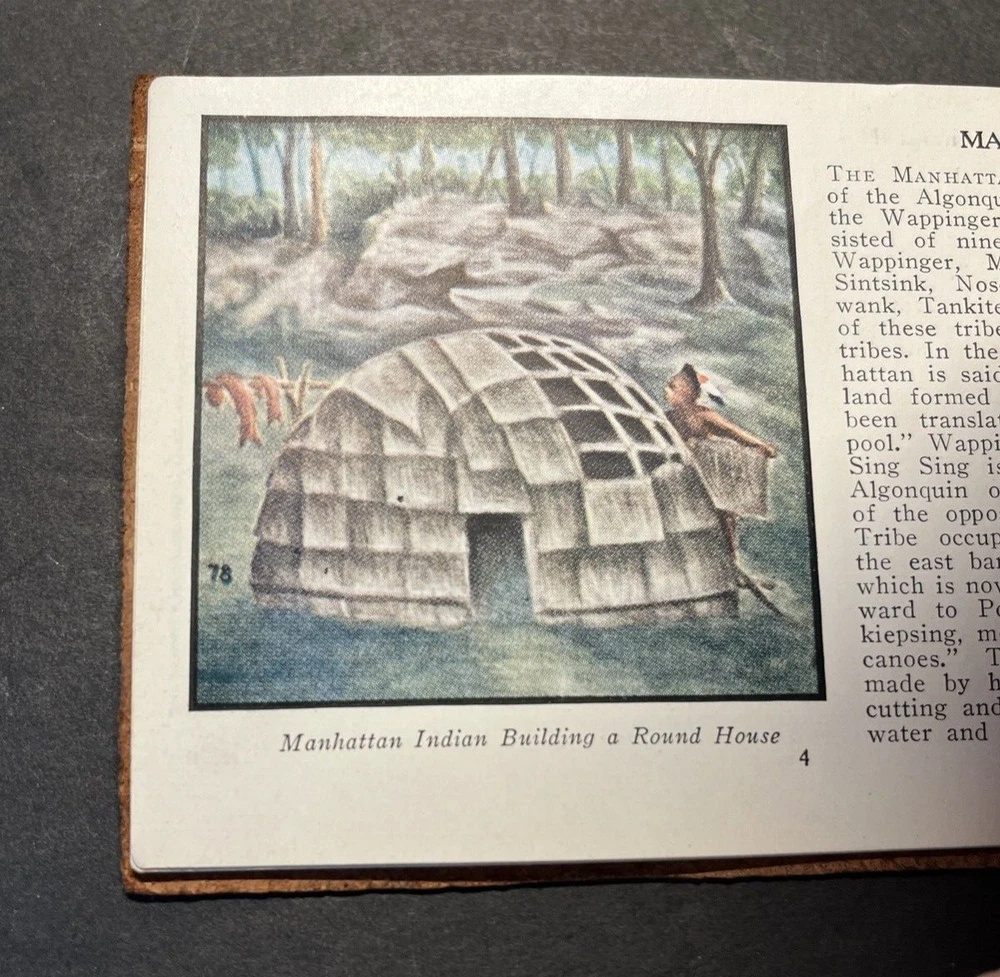 78
Manhattan Indian Building a Round House
4
MA
THE MANHATTA
of the Algonqu
the Wappinger
sisted of nine
Wappinger, M
Sintsink, Nos
wank, Tankite
of these tribe
tribes. In the
hattan is said
land formed
been translat
pool.” Wappi
Sing Sing is
Algonquin o
of the oppo
Tribe occup
the east ban
which is now
ward to Po
kiepsing, m
canoes.” T
made by h
cutting and
water and